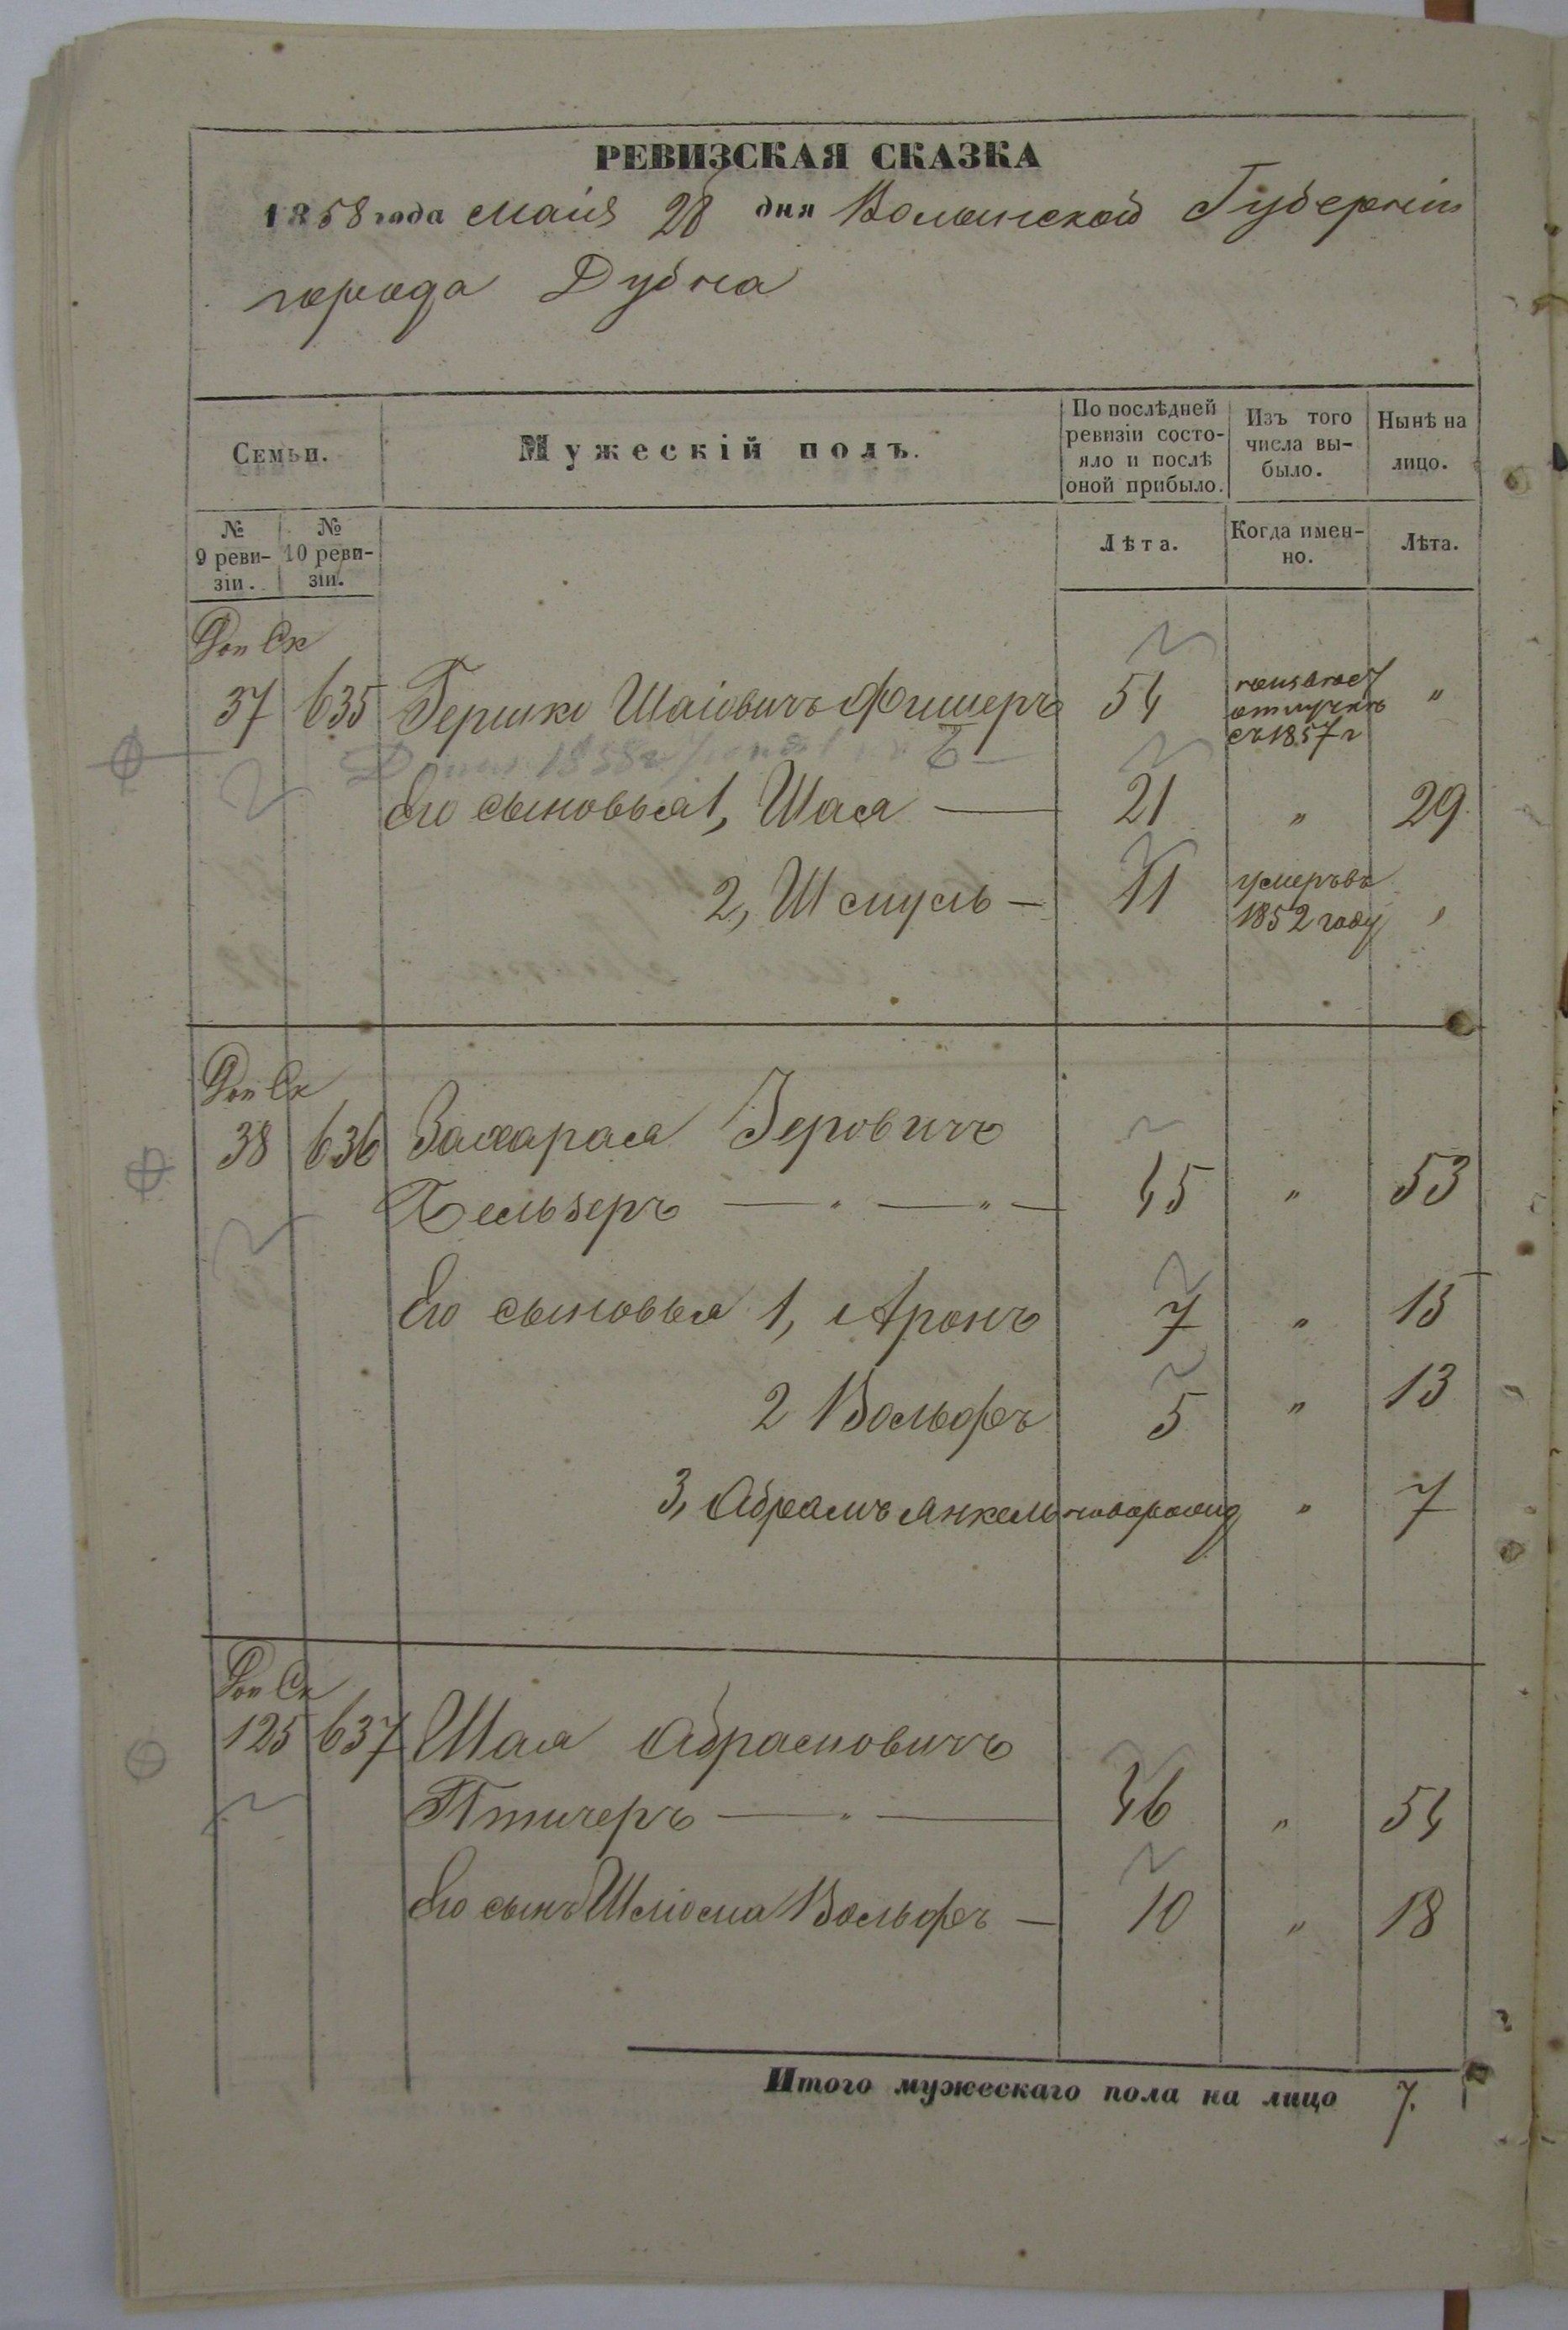 РЕВИЗСКАЯ СКАЗКА
1858 года маія 28 дня Волынской Губерніи
города Дубна
Семьи.
Мужескій полъ.
По послѣдней ревизіи состо-
яло и послѣ
оной прибыло.
Изъ того
числа вы-
было.
Нынѣ на
лицо.
№
9 реви-
зіи.
№
10 реви-
зіи.
Лѣта.
Когда имен-
но.
Лѣта.
Доп Ск
37 635 Гершко Шаіовичъ Фишеръ 54 отлучкѣ съ 1857 г "
1858
Его сыновья 1, Шая — 21 " 29
2, Шмуль — 11 умеръ въ 1852 году "
Доп Ск
38 636 Захарая Зеровичъ
Гельзеръ — " — " — 45 " 53
Его сыновья 1, Аронъ 7 " 15
2 Вольфъ 5 " 13
3, Абрамъ Янкель новорожд " 7
Доп Ск
125 637 Шая Абрамовичъ
Птичеръ — " — 46 " 54
Его сынъ Шліома Вольфъ — 10 " 18
Итого мужескаго пола на лицо 7.